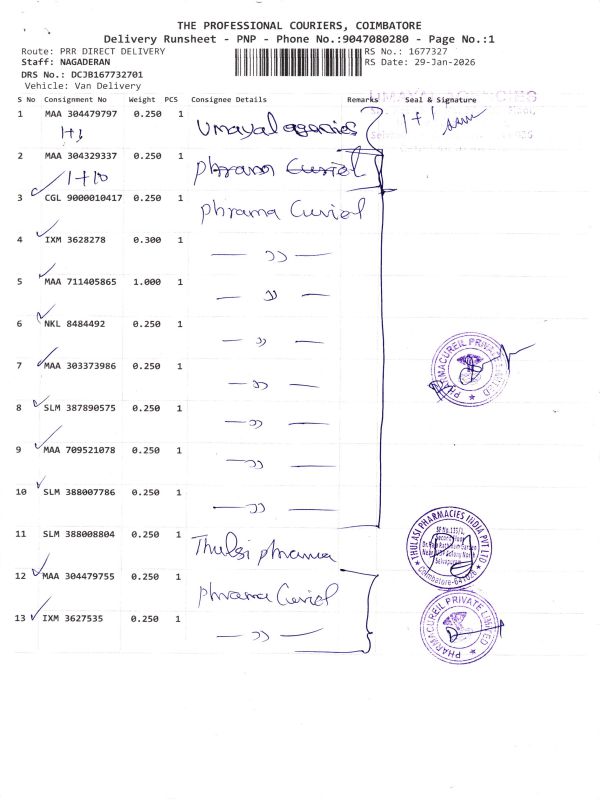 THE PROFESSIONAL COURIERS, COIMBATORE
Delivery Runsheet - PNP - Phone No.:9047080280 - Page No.:1
Route: PRR DIRECT DELIVERY
RS No.: 1677327
Staff: NAGADERAN
RS Date: 29-Jan-2026
DRS No.: DCJB167732701
Vehicle: Van Delivery
S No Consignment No Weight PCS Consignee Details Remarks Seal & Signature
UMAYAL AGENCIES
1 MAA 304479797 0.250 1 Umayal agencies 1+1
1+1
2 MAA 304329337 0.250 1 Phrama Curiel
1+10
3 CGL 9000010417 0.250 1 phrama Curiel
4 IXM 3628278 0.300 1 — ,, —
5 MAA 711405865 1.000 1 — ,, —
6 NKL 8484492 0.250 1 — ,, —
7 MAA 303373986 0.250 1 — ,, —
PHARMACUREIL PRIVATE LIMITED
8 SLM 387890575 0.250 1 — ,, —
9 MAA 709521078 0.250 1 — ,, —
10 SLM 388007786 0.250 1 — ,, —
11 SLM 388008804 0.250 1 Thulsi phrama
THULASI PHARMACIES INDIA PVT LTD
Coimbatore-641026
12 MAA 304479755 0.250 1 phrama Curiel
13 IXM 3627535 0.250 1 — ,, —
PHARMACUREIL PRIVATE LIMITED